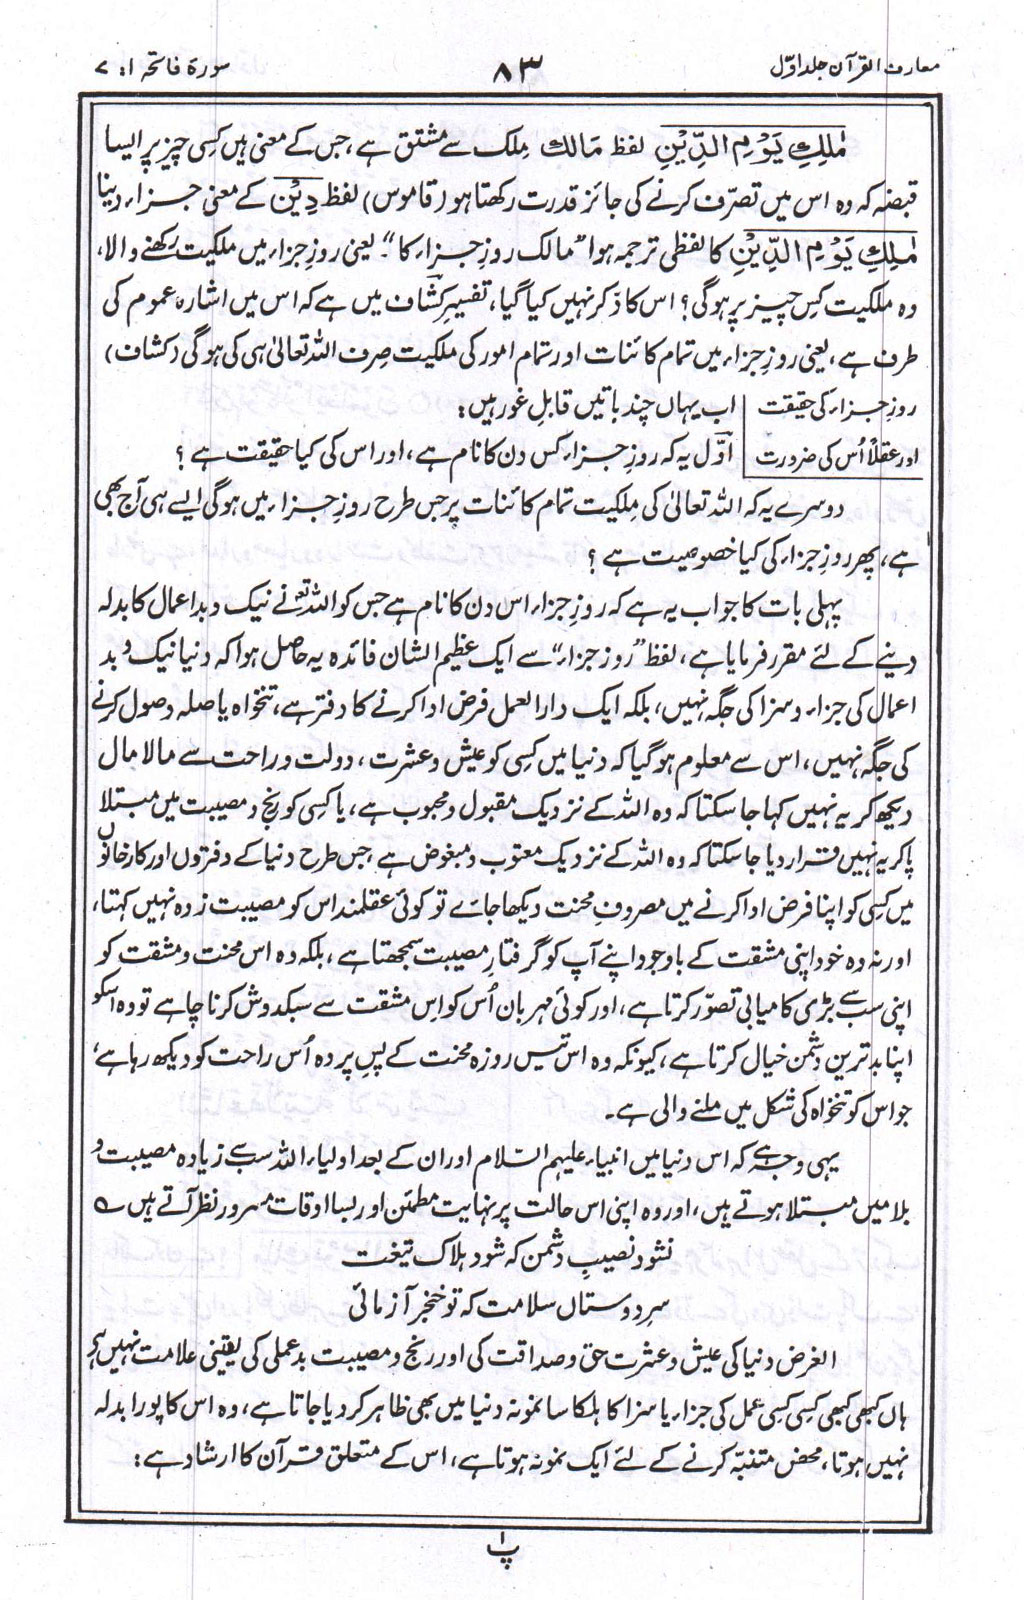 معارف القرآن جلد اوّل
۸۳
سورۃ فاتحہ ۱: ۷
مٰلِكِ يَوْمِ الدِّيْنِ لفظ مَالك مِلک سے مشتق ہے، جس کے معنی ہیں کسی چیز پر ایسا
قبضہ کہ وہ اس میں تصرّف کرنے کی جائز قدرت رکھتا ہو (قاموس) لفظ دِیْن کے معنی جزاء دینا
مٰلِكِ يَوْمِ الدِّيْنِ کا لفظی ترجمہ ہوا "مالک روزِ جزاء کا"۔ یعنی روزِ جزاء میں ملکیت رکھنے والا،
وہ ملکیت کِس چیز پر ہوگی؟ اس کا ذکر نہیں کیا گیا، تفسیر کشّاف میں ہے کہ اس میں اشارہ عموم کی
طرف ہے، یعنی روزِ جزاء میں تمام کائنات اور تمام امور کی ملکیت صِرف اللہ تعالیٰ ہی کی ہوگی (کشاف)
روزِ جزاء کی حقیقت
اور عقلاً اُس کی ضرورت
اب یہاں چند باتیں قابلِ غور ہیں:
اوّل یہ کہ روزِ جزاء کس دن کا نام ہے، اور اس کی کیا حقیقت ہے؟
دوسرے یہ کہ اللہ تعالیٰ کی مِلکیت تمام کائنات پر جس طرح روزِ جزاء میں ہوگی ایسے ہی آج بھی
ہے، پھر روزِ جزاء کی کیا خصوصیت ہے؟
پہلی بات کا جواب یہ ہے کہ روزِ جزاء اس دن کا نام ہے جس کو اللہ تعالیٰ نے نیک و بد اعمال کا بدلہ
دینے کے لئے مقرر فرمایا ہے، لفظ "روزِ جزاء" سے ایک عظیم الشان فائدہ یہ حاصل ہوا کہ دنیا نیک و بد
اعمال کی جزاء و سزا کی جگہ نہیں، بلکہ ایک دارالعمل فرض ادا کرنے کا دفتر ہے، تنخواہ یا صلہ وصول کرنے
کی جگہ نہیں، اس سے معلوم ہوگیا کہ دنیا میں کسی کو عیش و عشرت، دولت و راحت سے مالا مال
دیکھ کر یہ نہیں کہا جا سکتا کہ وہ اللہ کے نزدیک مقبول و محبوب ہے، یا کسی کو رنج و مصیبت میں مبتلا
پاکر یہ نہیں قرار دیا جا سکتا کہ وہ اللہ کے نزدیک معتوب و مبغوض ہے جس طرح دنیا کے دفتروں اور کارخانوں
میں کسی کو اپنا فرض ادا کرنے میں مصروفِ محنت دیکھا جائے تو کوئی عقلمند اس کو مصیبت زدہ نہیں کہتا،
اور نہ وہ خود اپنی مشقت کے باوجود اپنے آپ کو گرفتارِ مصیبت سمجھتا ہے، بلکہ وہ اس محنت و مشقت کو
اپنی سب سے بڑی کامیابی تصوّر کرتا ہے، اور کوئی مہربان اُس کو اِس مشقت سے سبکدوش کرنا چاہے تو وہ اسکو
اپنا بدترین دشمن خیال کرتا ہے، کیونکہ وہ اس تیس روزہ محنت کے پسِ پردہ اُس راحت کو دیکھ رہا ہے،
جو اس کو تنخواہ کی شکل میں ملنے والی ہے۔
یہی وجہ ہے کہ اس دنیا میں انبیاء علیہم السّلام اور ان کے بعد اولیاء اللہ سب سے زیادہ مصیبت و
بلا میں مبتلا ہوتے ہیں، اور وہ اپنی اس حالت پر نہایت مطمئن اور بسا اوقات مسرور نظر آتے ہیں ؎
نشود نصیبِ دشمن کہ شود ہلاک تیغت
سرِ دوستاں سلامت کہ تو خنجر آزمائی
الغرض دنیا کی عیش و عشرت حق و صداقت کی اور رنج و مصیبت بدعملی کی یقینی علامت نہیں ہے
ہاں کبھی کبھی کسی کسی عمل کی جزاء یا سزا کا ہلکا سا نمونہ دنیا میں بھی ظاہر کر دیا جاتا ہے، وہ اس کا پورا بدلہ
نہیں ہوتا، محض متنبّہ کرنے کے لئے ایک نمونہ ہوتا ہے، اس کے متعلق قرآن کا ارشاد ہے:
پ ۱